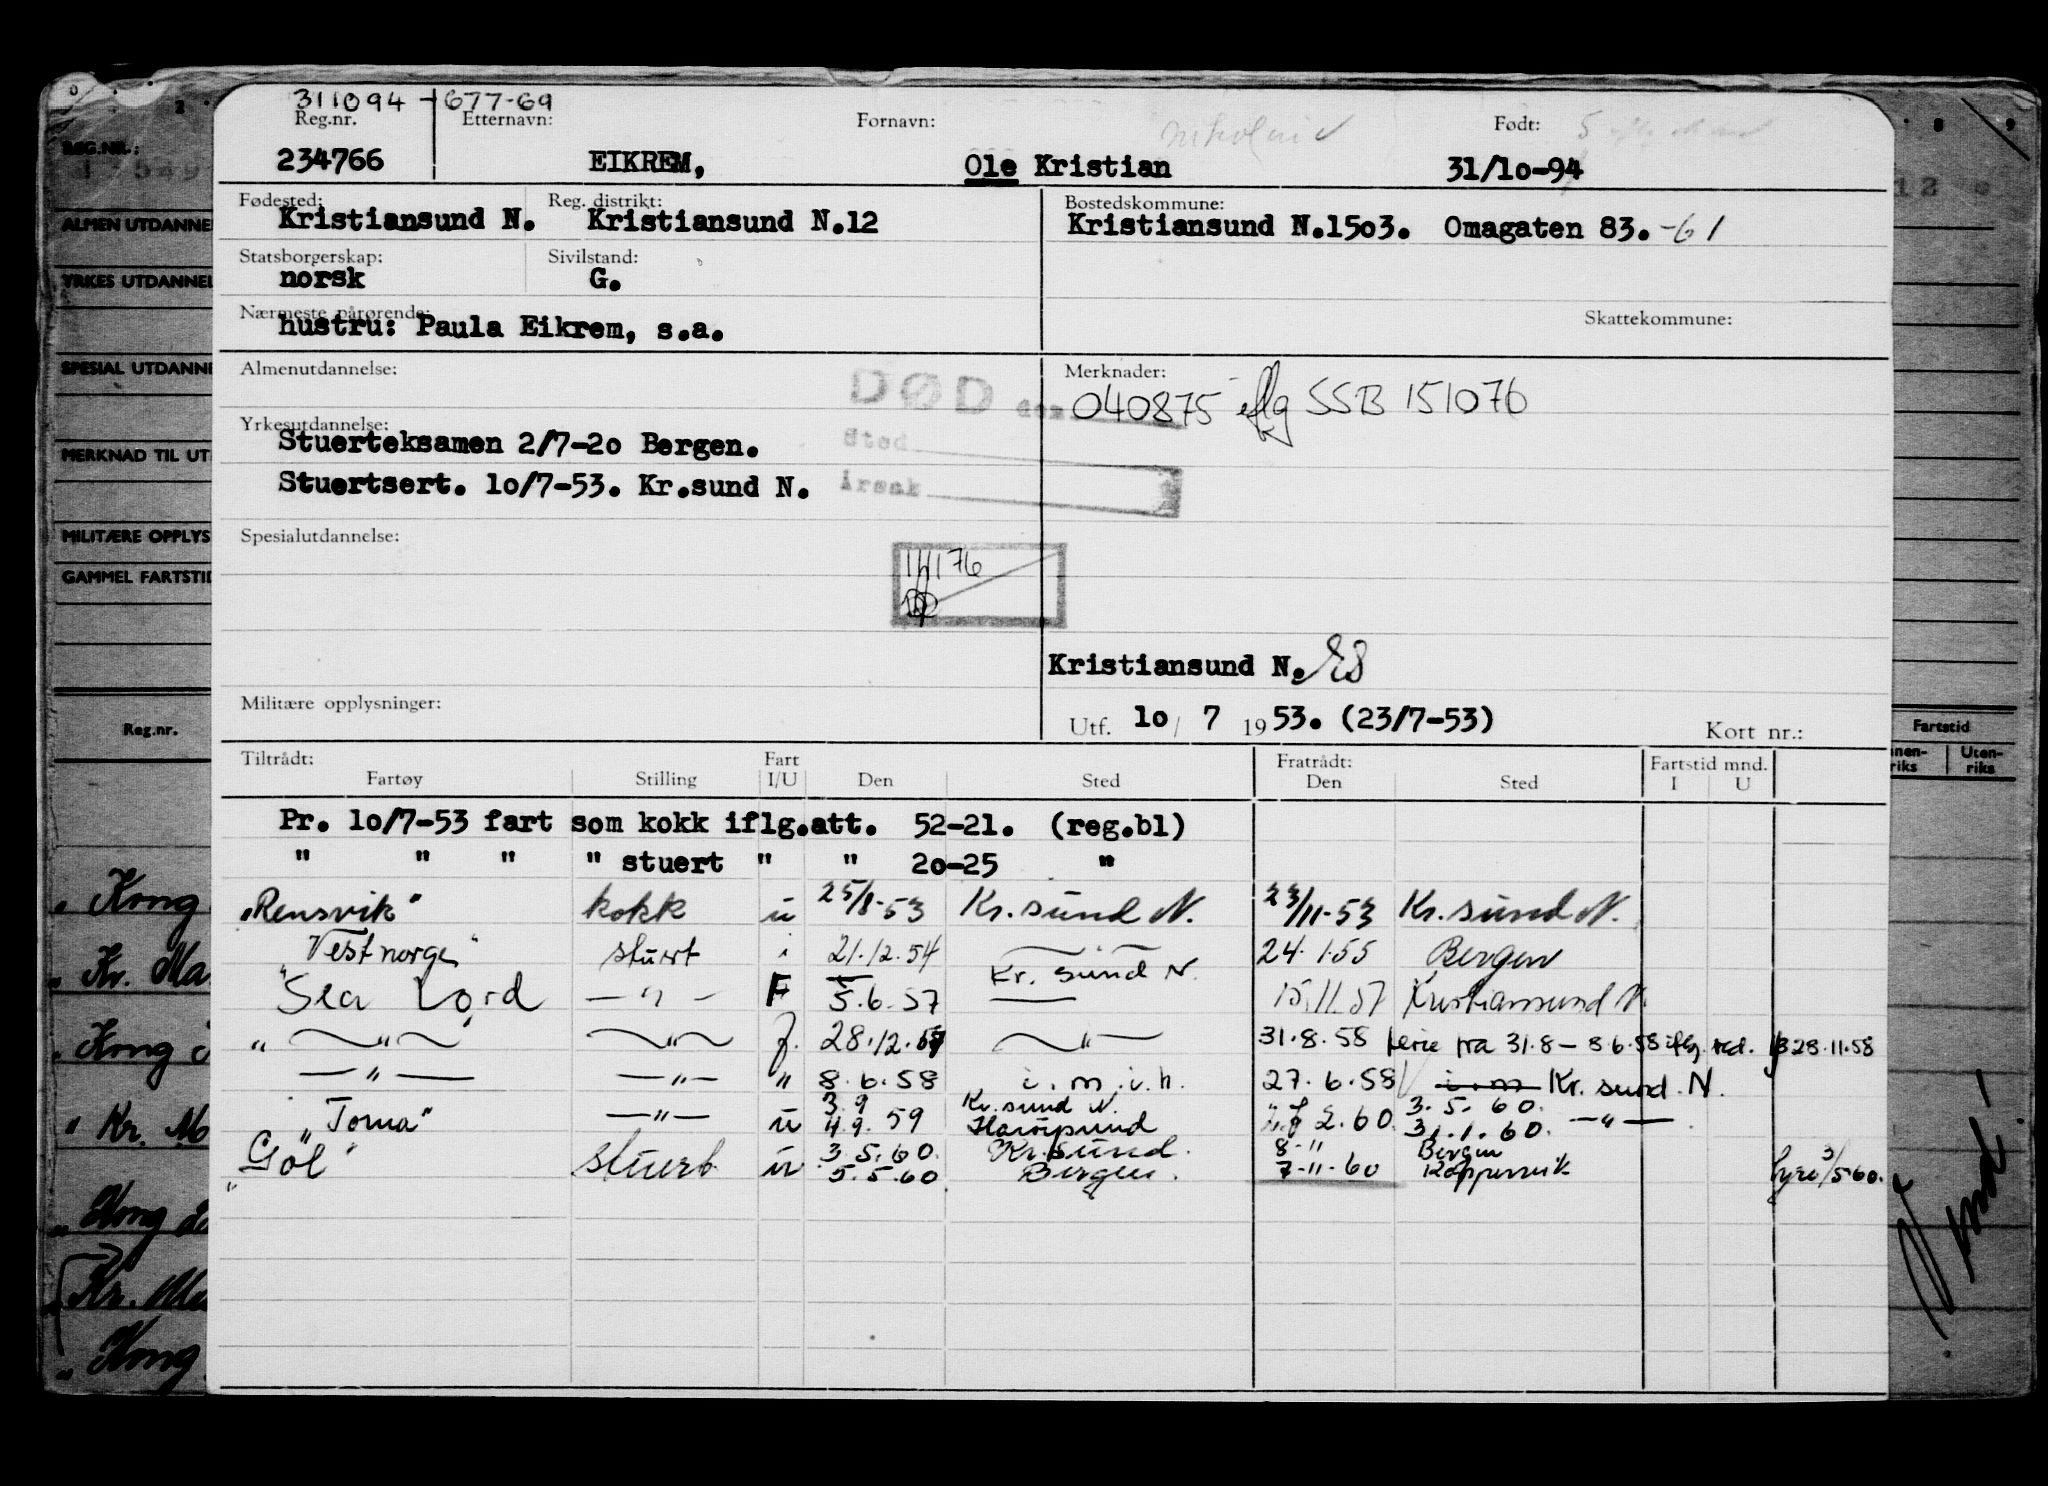 311094 - 677-69
Reg.nr. Etternavn: Fornavn: Født:
234766 EIKREM, Ole Kristian 31/10-94
Fødested: Reg. distrikt: Bostedskommune:
Kristiansund N. Kristiansund N.12 Kristiansund N.1503. Omagaten 83. -61
Statsborgerskap: Sivilstand:
norsk G.
Nærmeste pårørende: Skattekommune:
hustru: Paula Eikrem, s.a.
Almenutdannelse: Merknader:
DØD den 040875 iflg SSB 151076
Yrkesutdannelse: Sted
Stuerteksamen 2/7-20 Bergen.
Stuertsert. 10/7-53. Kr.sund N. Årsak
Spesialutdannelse:
Kristiansund N.
Militære opplysninger: Utf. 10/ 7 1953. (23/7-53) Kort nr.:
Tiltrådt: Fart Fratrådt: Fartstid mnd.
Fartøy Stilling I/U Den Sted Den Sted I U
Pr. 10/7-53 fart som kokk iflg.att. 52-21. (reg.bl)
" " " " stuert " " 20-25 "
"Rensvik" kokk u 25/8-53 Kr.sund N. 23/11-53 Kr.sund N.
"Vestnorge" stuert i 21.12.54 24.1.55 Bergen
"Sea Lord - " - F 5.6.57 Kr. sund N. 15.11.57 Kristiansund N.
" — " — — " — f. 28.12.57 — " — 31.8.58 ferie fra 31.8 - 8.6.58 iflg. red. 28.11.58
— " — — " — " 8.6.58 i.m.i.h. 27.6.58 i.m Kr. sund. N.
"Toma" — " — u 3.9 4.9.59 Kr.sund N. Harøysund 2.60. 3.5.60. 31.1.60. — " —
"Gol" stuert u 3.5.60. 5.5.60 Kr.sund. Bergen. 8-11 7-11-60 Bergen Koppervik hyre 3/5-60.
REG.NR.:
ALMEN UTDANNE
YRKES UTDANNEL
SPESIAL UTDANN
MERKNAD TIL UT
MILITÆRE OPPLYS
GAMMEL FARTSTID
Reg.nr. Fartstid
nnen-riks Uten-riks
" Kong
" Kr. Ma
" Kong
" Kr. M
" Kong
Kr. Ma
" Kong